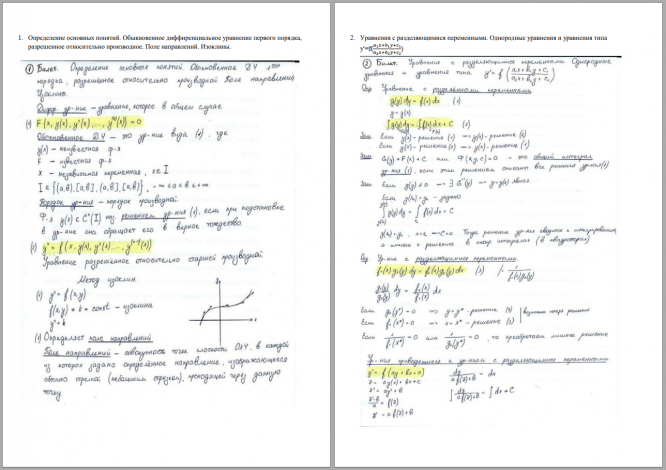 1. Определение основных понятий. Обыкновенное дифференциальное уравнение первого порядка,
разрешенное относительно производное. Поле направлений. Изоклины.
① Билет. Определение основных понятий. Обыкновенное ДУ 1ого
порядка, разрешённое относительно производной. Поле направлений.
Изоклины.
Дифф. ур-ние – уравнение, которое в общем случае
(1) F(x, y(x), y'(x), ..., y⁽ⁿ⁾(x)) = 0
Обыкновенное ДУ – это ур-ние вида (1), где
y(x) – неизвестная ф-я
F – известная ф-я
x – независимая переменная, x ∈ I
I ∈ {(a,b), [a,b], (a,b], [a,b)}, -∞ ≤ a < b ≤ +∞
Порядок ур-ния – порядок производной.
Ф-я y(x) ∈ Cⁿ(I) наз. решением ур-ния (1), если при подстановке
в ур-ние она обращает его в верное тождество.
(2) yⁿ = f(x, y(x), y'(x), ..., y⁽ⁿ⁻¹⁾(x))
Уравнение разрешённое относительно старшей производной.
Метод изоклин.
(1) y' = f(x,y)
f(x,y) = k = const – изоклина
y' = k
(1) Определяет поле направлений
Поле направлений – совокупность точек плоскости OXY, в каждой
из которых задано определённое направление, изображающееся
обычно стрелкой (небольшим отрезком), проходящей через данную
точку
2. Уравнения с разделяющимися переменными. Однородные уравнения и уравнения типа
y'=f((a₁x+b₁y+c₁)/(a₂x+b₂y+c₂))
② Билет. Уравнения с разделяющимися переменными. Однородные
уравнения и уравнения типа y' = f((a₁x+b₁y+c₁)/(a₂x+b₂y+c₂))
Опр Уравнение с разделёнными переменными
g(y)dy = f(x)dx (1)
y = y(x)
∫g(y)dy = ∫f(x)dx + C (2)
Если y(x) - решение (1) => y(x) - решение (2)
Если y(x) - решение (2) => y(x) - решение (1)
G(y) = F(x) + C или Φ(x,y,c) = 0 - это общий интеграл
ур-ния (1), если этим решением описать все решения ур-ния (1)
Если g(y) ≠ 0
Если y(x₀) = y₀ - задано
Тогда решение ур-ния сводится к интегрированию,
Ур-ние с разделяющимися переменными.
f₁(x)g₁(y)dy = f₂(x)g₂(y)dx (3)
g₁(y)/g₂(y) dy = f₂(x)/f₁(x) dx
Если g₂(y*) = 0 => y = y* - решение (3)
Если f₁(x*) = 0 => x = x* - решение (3)
Если
Ур-ния приводящиеся к ур-ниям с разделяющимися переменными
y' = f(ay+bx+c)
z = ay(x) + bx + c
z' = ay' + b
(z'-b)/a = f(z)
z' = af(z)+b
dz/(af(z)+b) = dx
∫dz/(af(z)+b) = ∫dx + C